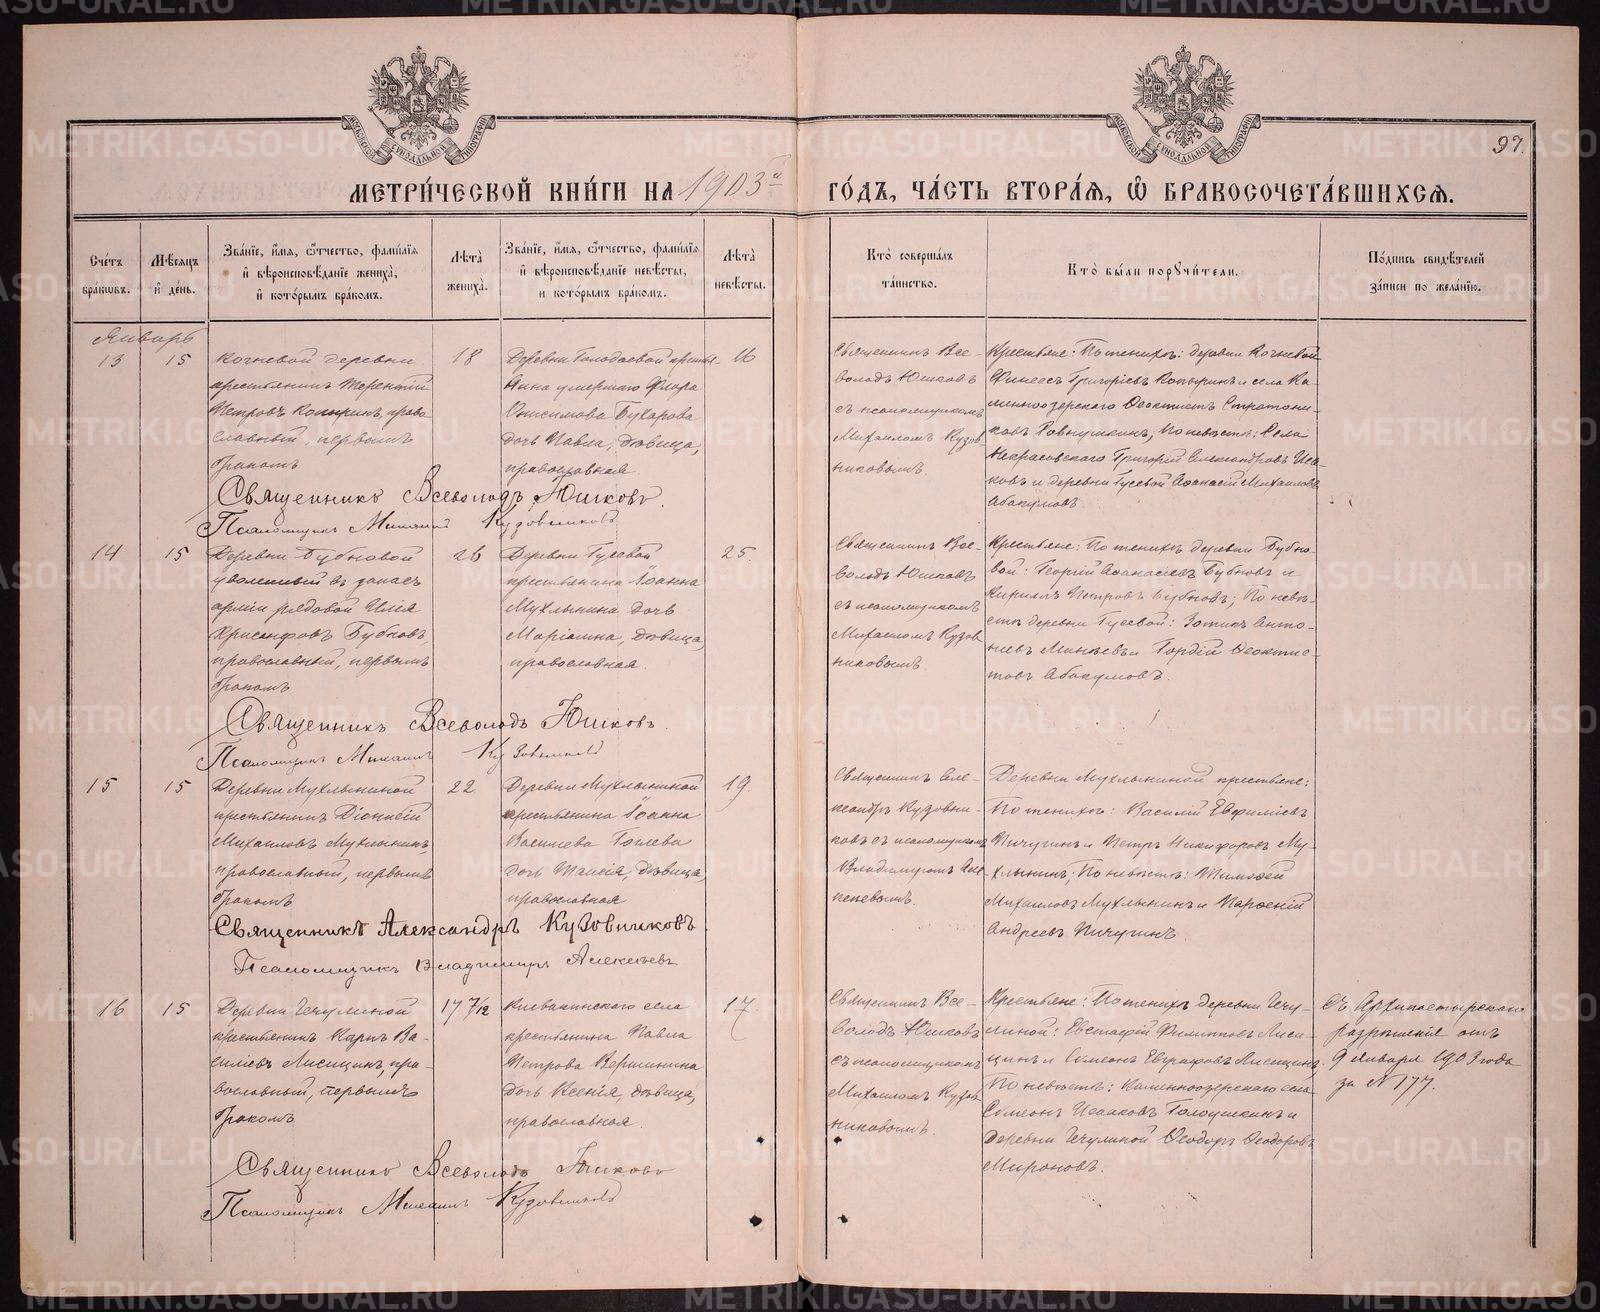 МЕТРИ́ЧЕСКОЙ КНИ́ГИ НА 1903й ГО́ДЪ, ЧА́СТЬ ВТОРА́Я, Ѿ БРАКОСОЧЕТА́ВШИХСЯ.
97.
МОСКОВСКОЙ СѴНОДАЛЬНОЙ ТИПОГРАФІИ
МОСКОВСКОЙ СѴНОДАЛЬНОЙ ТИПОГРАФІИ
Сче́тъ бра́кѡвъ.
Мѣ́сяцъ и҆ де́нь.
Зва́нїе, и҆́мя, ѻ҆́тчество, фами́лїя
и҆ вѣроисповѣ́данїе жениха̀,
и҆ кото́рымъ бра́комъ.
Лѣ́та жениха̀.
Зва́нїе, и҆́мя, ѻ҆́тчество, фами́лїя
и҆ вѣроисповѣ́данїе невѣ́сты,
и кото́рымъ бра́комъ.
Лѣ́та невѣ́сты.
Кто̀ соверша́лъ та́инство.
Кто̀ бы́ли порꙋчи́тели.
По́дпись свидѣ́телей за́писи по жела́нїю.
Январь
13
15
Кочневой деревни
крестьянинъ Терентій
Петровъ Копыринъ, право-
славный, первымъ
бракомъ
18
Деревни Голодаевой кресть-
янина умершаго Флора
Онисимова Бухарова
дочь Павла, дѣвица,
православная.
16
Священникъ Все-
володъ Юшковъ
съ псаломщикомъ
Михаиломъ Кузов-
никовымъ.
Крестьяне: По женихѣ: деревни Кочневой
Финеесъ Григоріевъ Копыринъ и села Ка-
менноозерскаго Ѳеоктистъ Стратони-
ковъ; По невѣстѣ: Села
Некрасовскаго Григорій Александровъ Иса-
ковъ и деревни Гусевой Аѳанасій Михаиловъ
Абакумовъ
Священникъ Всеволодъ Юшковъ.
Псаломщикъ Михаилъ Кузовниковъ
14
15
Деревни Бубновой
уволенный въ запасъ
арміи рядовой Илія
Хрисанфовъ Бубновъ
православный, первымъ
бракомъ
26
Деревни Гусевой
крестьянина Іоанна
Мухлынина дочь
Маріамна, дѣвица,
православная.
25.
Священникъ Все-
володъ Юшковъ
съ псаломщикомъ
Михаиломъ Кузов-
никовымъ
Крестьяне: По женихѣ деревни Бубно-
вой: Георгій Аѳанасіевъ Бубновъ и
Кириллъ Петровъ Бубновъ; По невѣ-
стѣ деревни Гусевой: Зотикъ Анто-
ніевъ Минѣевъ и Гордій Ѳеоктис-
товъ Абакумовъ.
Священникъ Всеволодъ Юшковъ.
Псаломщикъ Михаилъ Кузовниковъ
15
15
Деревни Мухлыниной
крестьянинъ Діонисій
Михаиловъ Мухлынинъ,
православный, первымъ
бракомъ
22
Деревни Мухлыниной
крестьянина Іоанна
Васильева Гоглева
дочь Таисія, дѣвица,
православная
19.
Священникъ Але-
ксандръ Кузовни-
ковъ съ псаломщикомъ
Владимиромъ Але-
ксѣевымъ.
Деревни Мухлыниной крестьяне:
По женихѣ: Василій Евфиміевъ
Пичугинъ и Петръ Никифоровъ Му-
хлынинъ; По невѣстѣ: Тимоѳей
Михаиловъ Мухлынинъ и Парѳеній
Андреевъ Пичугинъ.
Священникъ Александръ Кузовниковъ
Псаломщикъ Владимиръ Алексѣевъ
16
15
Деревни Чечулиной
крестьянинъ Карпъ Ва-
силіевъ Лисицинъ, пра-
вославный, первымъ
бракомъ
17 7/12
Клевакинскаго села
крестьянина Павла
Петрова Вершинина
дочь Ксенія, дѣвица,
православная.
17.
Священникъ Все-
володъ Юшковъ
съ псаломщикомъ
Михаиломъ Кузов-
никовымъ.
Крестьяне: По женихѣ деревни Чечу-
линой: Евстафій Филипповъ Лиси-
цинъ и Симеонъ Евграфовъ Лисицинъ.
По невѣстѣ: Каменноозерскаго села
Симеонъ Исааковъ Голоушкинъ и
деревни Чечулиной Ѳеодоръ Ѳеодоровъ
Мироновъ.
Съ Архипастырскаго
разрѣшенія отъ
9 января 1903 года
за № 177.
Священникъ Всеволодъ Юшковъ
Псаломщикъ Михаилъ Кузовниковъ
METRIKI.GASO-URAL.RU